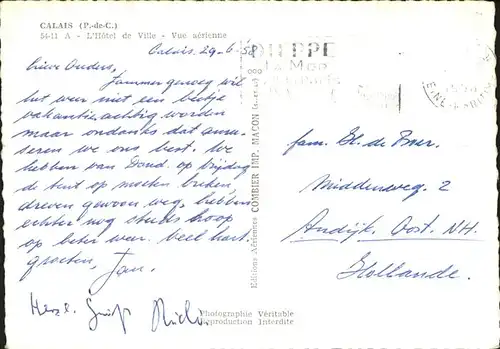 CALAIS (P.-de-C.)
54-11 A - L'Hôtel de Ville - Vue aérienne
Calais 29-6-'58
Lieve Ouders,
Jammer genoeg wil
het weer niet een beetje
vakantieachtig worden
maar ondanks dat amu-
seren we ons best. We
hebben van op
de tent op moeten breken,
dreven gewoon weg, hebben
echter nog steeds hoop
op beter weer. Veel hart.
groeten, Jan.
Herzl. Gruß
DIEPPE
La Mer
Editions Aériennes COMBIER IMP. MACON
fam. de Boer.
Middenweg 2
Andijk Oost. NH.
Hollande.
Photographie Véritable
Reproduction Interdite